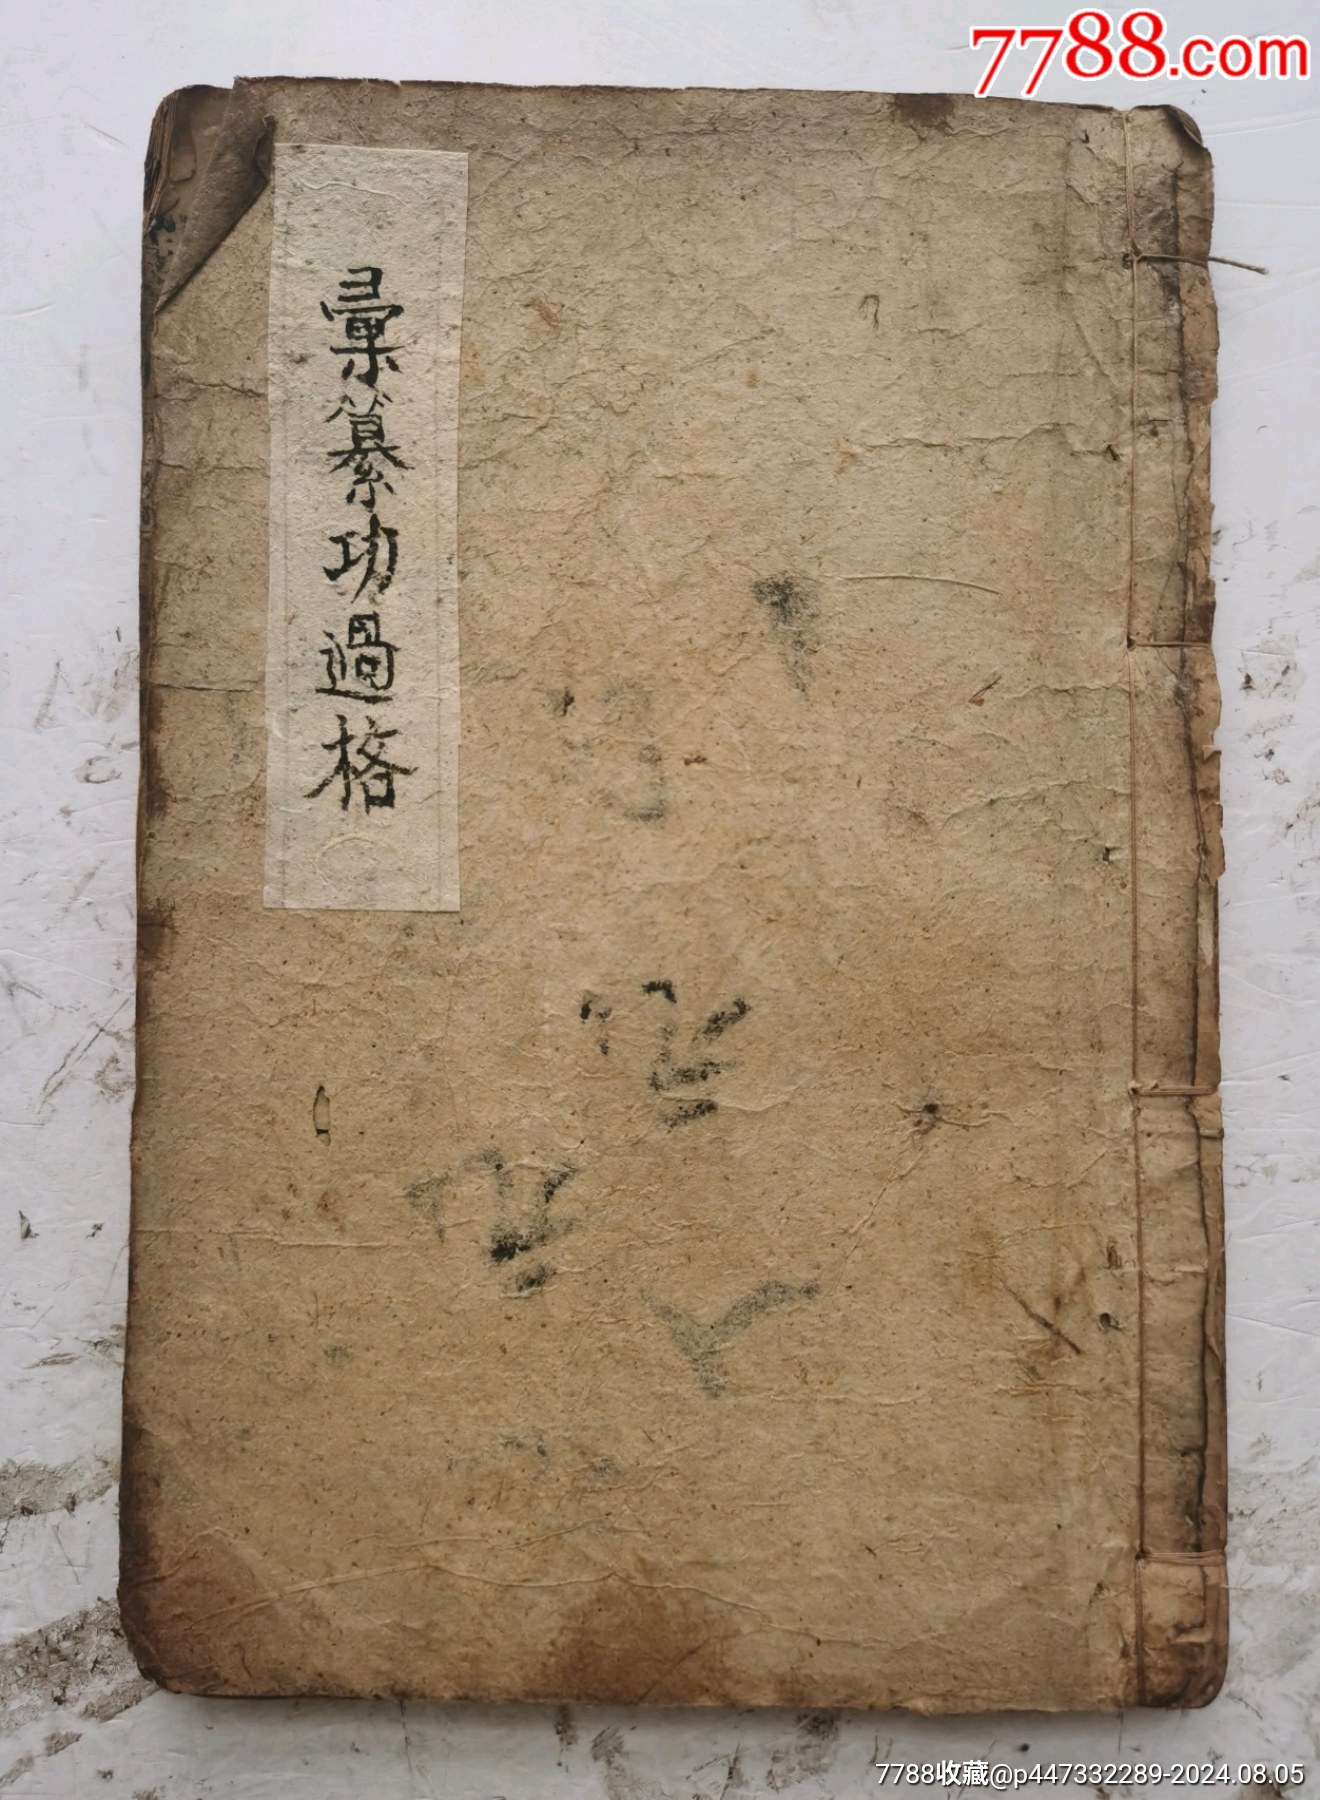 7788.com
彙纂功過格
7788收藏@p447332289-2024.08.05